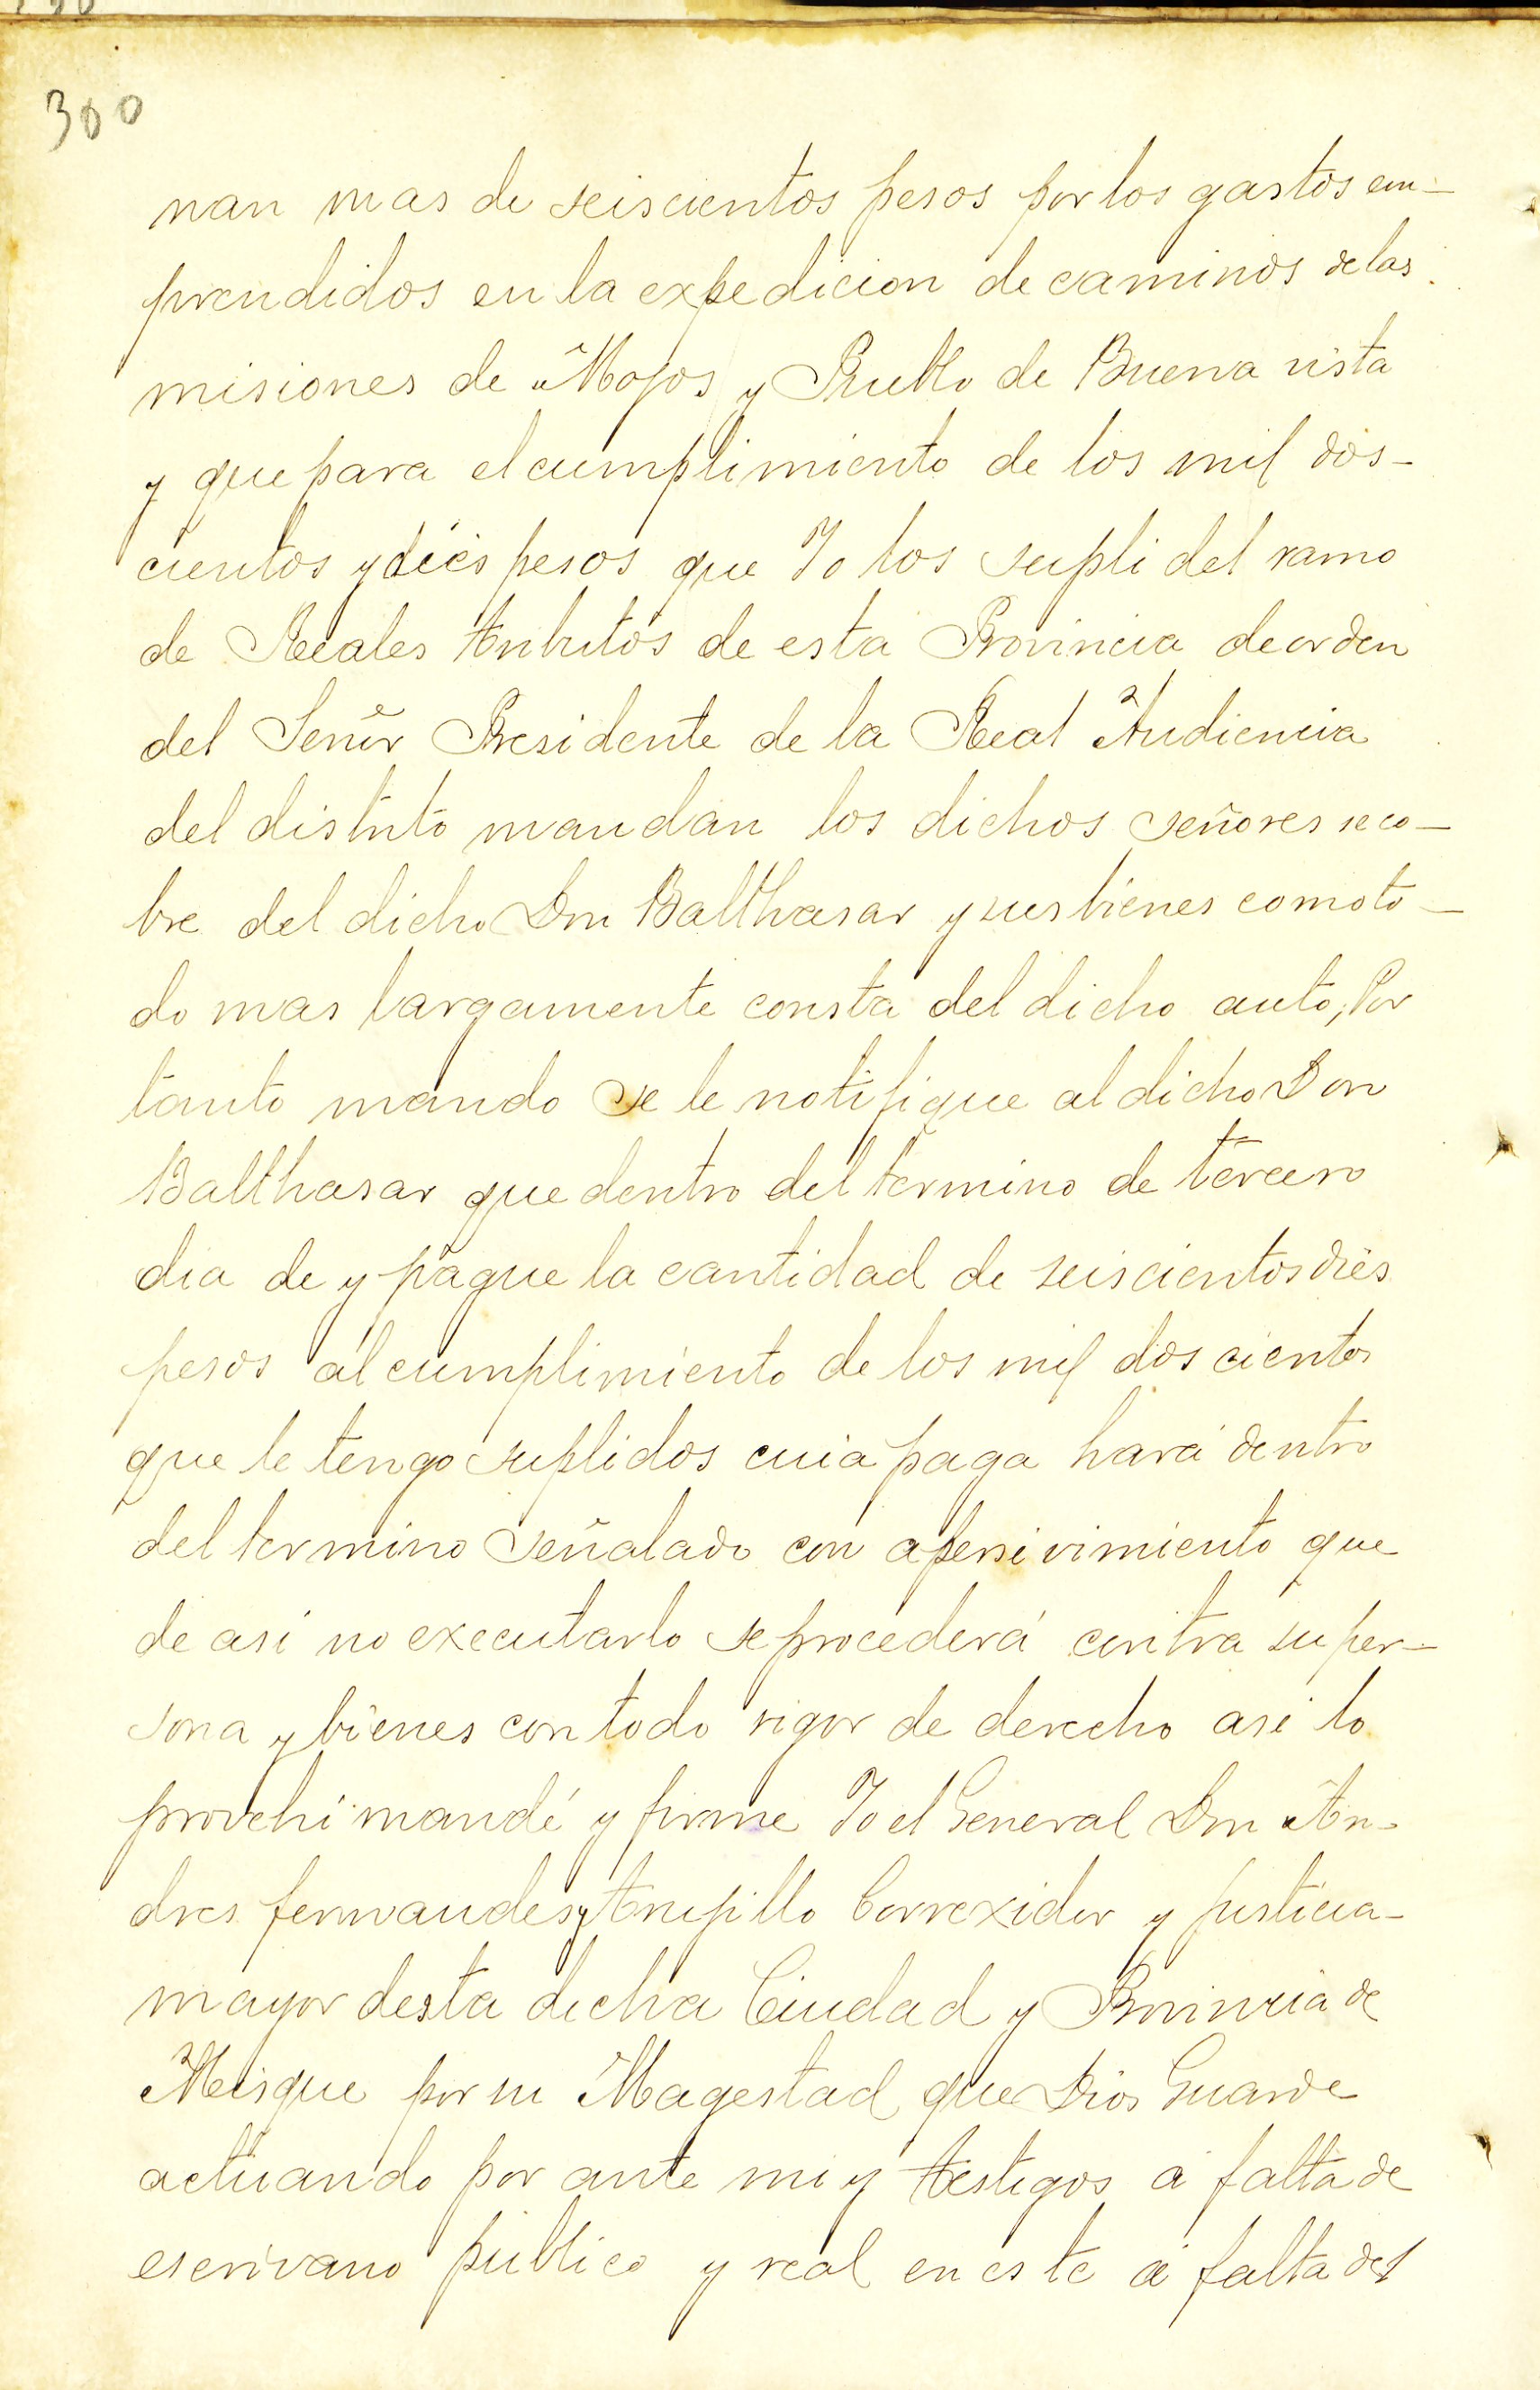 300
nan mas de seiscientos pesos por los gastos em-
prendidos en la expedicion de caminos de las
misiones de Mojos y Pueblo de Buena vista
y que para el cumplimiento de los mil dos-
cientos y diés pesos que Yo los supli del ramo
de Reales tributos de esta Provincia de orden
del Señor Presidente de la Real Audiencia
del distrito mandan los dichos señores se co-
bre del dicho Don Balthasar y sus bienes como to-
do mas largamente consta del dicho auto, Por
tanto mando se le notifique al dicho Don
Balthasar que dentro del termino de tercero
dia de y pague la cantidad de seiscientos diés
pesos al cumplimiento de los mil dos cientos
que le tengo suplidos cuia paga hará dentro
del termino señalado con apersivimiento que
de asi no executarlo se procederá contra su per-
sona y bienes con todo rigor de derecho asi lo
provehi mandé y firme Yo el General Don An-
dres fernandes y trujillo Correxidor y justicia-
mayor desta dicha Ciudad y Provincia de
Meisque por su Magestad que Dios Guarde
actuando por ante mi y testigos á falta de
escrivano publico y real en este á falta del